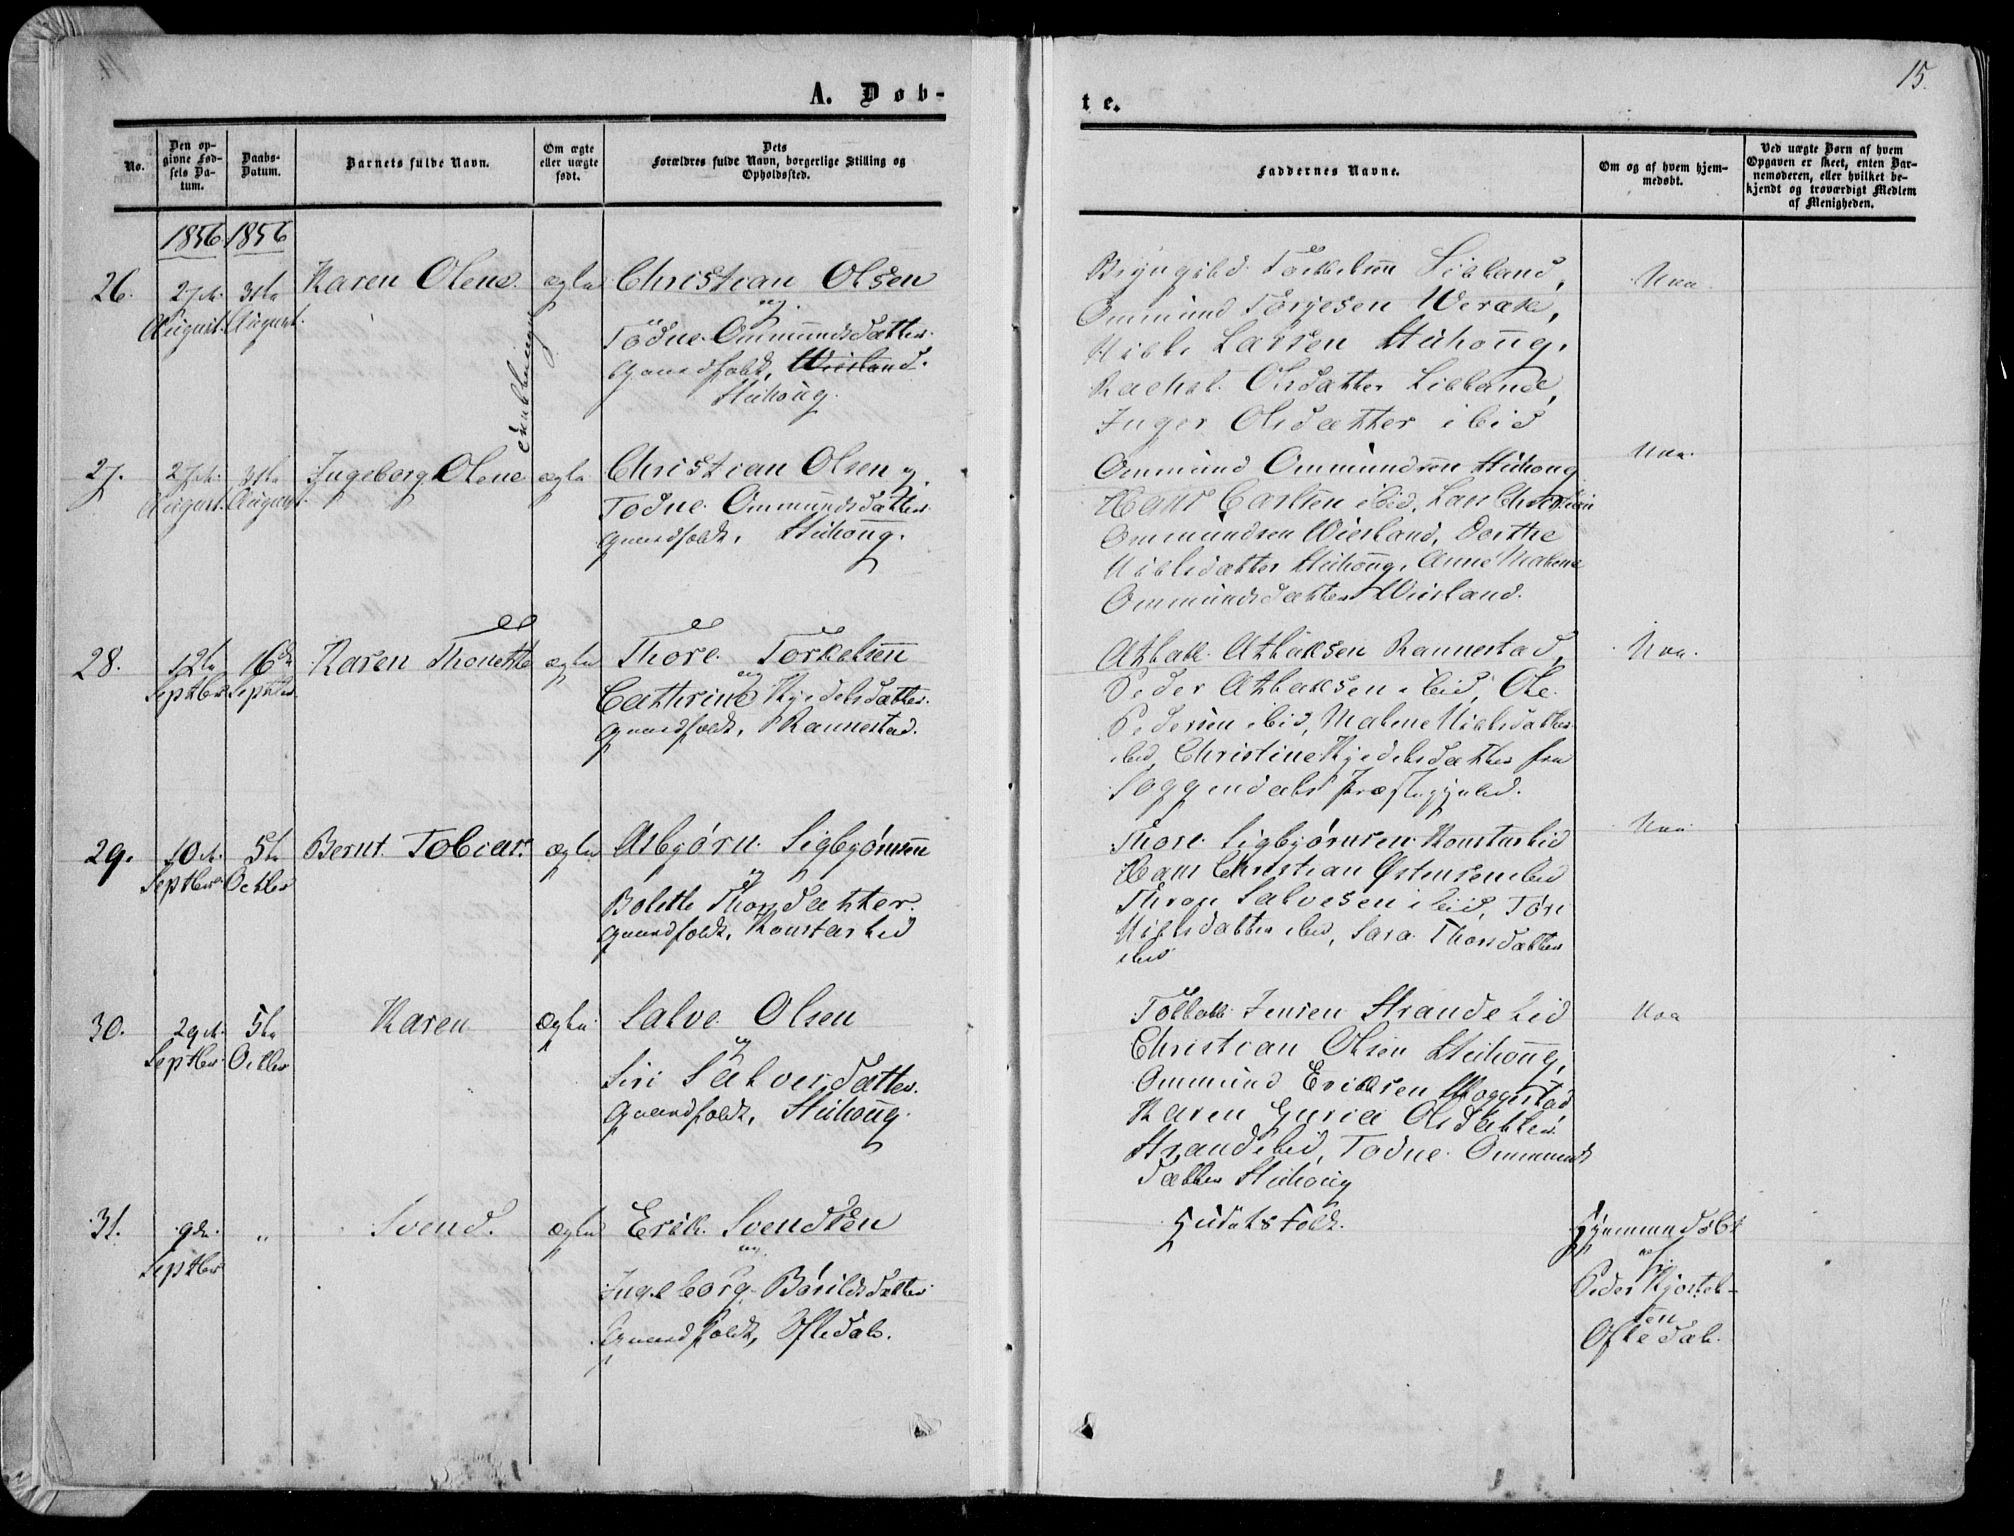 15.
A. Døb-
te.
No.
Den op-
givne Fød-
sels Da-
tum.
Daabs-
Datum.
Barnets fulde Navn.
Om ægte
eller uægte
født.
Dets
Forældres fulde Navn, borgerlige Stilling og
Opholdssted.
Faddernes Navne.
Om og af hvem hjem-
medøbt.
Ved uægte Børn af hvem
Opgaven er skeet, enten Bar-
nemoderen, eller hvilket be-
kjendt og troværdigt Medlem
af Menigheden.
1856 1856
26.
27de
August
31te
August
Karen Olene
ægte
Christian Olsen
og
Todne Ommundsdatter
Gaardfolk,
Stuhoug.
Ommund Torjesen
Larsen Stuhoug,
Rachel Olsdatter
Inger Olsdatter ibid
27.
27de
August
31te
August
Ingeborg Olene
ægte
Christian Olsen og
Todne Ommundsdatter
Gaardfolk, Stuhoug.
Ommund Ommundsen Stuhoug
Hans Carlsen ibid, Lars Christian
Ommundsen Wiesland, Dorthe
Nielsdatter Stuhoug, Anne Malene
Ommundsdatter Wiesland.
28.
12te
Septber
16de
Septber
Karen Thonette
ægte
Thore Torkelsen
og
Cathrine Kjedelsdatter
Gaardfolk, Rannestad.
Atlak Atlaksen Rannestad,
Peder Atlaksen ibid, Ole
Pedersen ibid, Malene Nielsdatter
ibid, Christine Kjedelsdatter fra
Soggendals Præstegjeld.
29.
10de
Septber
5te
Octber
Bernt Tobias.
ægte
Asbjørn Sigbjørnsen
og
Bolette Thorsdatter
Gaardfolk, Konstalid
Thore Sigbjørnsen Konstalid
Hans Christian Østensen ibid
Thron Salvesen ibid, Tori
Nielsdatter ibid, Sara Thorsdatter
ibid
30.
29de
Septber
5te
Octber
Karen
ægte
Salve Olsen
og
Siri Salvesdatter
Gaardfolk, Stuhoug.
Tollak Jensen Strandelid
Christian Olsen Stuhoug,
Ommund Eriksen Moggestad
Karen Guria Olsdatter
Strandelid, Todne Ommunds
datter Stuhoug
31.
9de
Septber
"
Svend.
ægte
Erik Svendsen
og
Ingeborg Børildsdatter
Gaardfolk, Ofledal.
Huusets Folk.
Hjemmedøbt
af
Peder Kjostel-
sen
Ofledal.